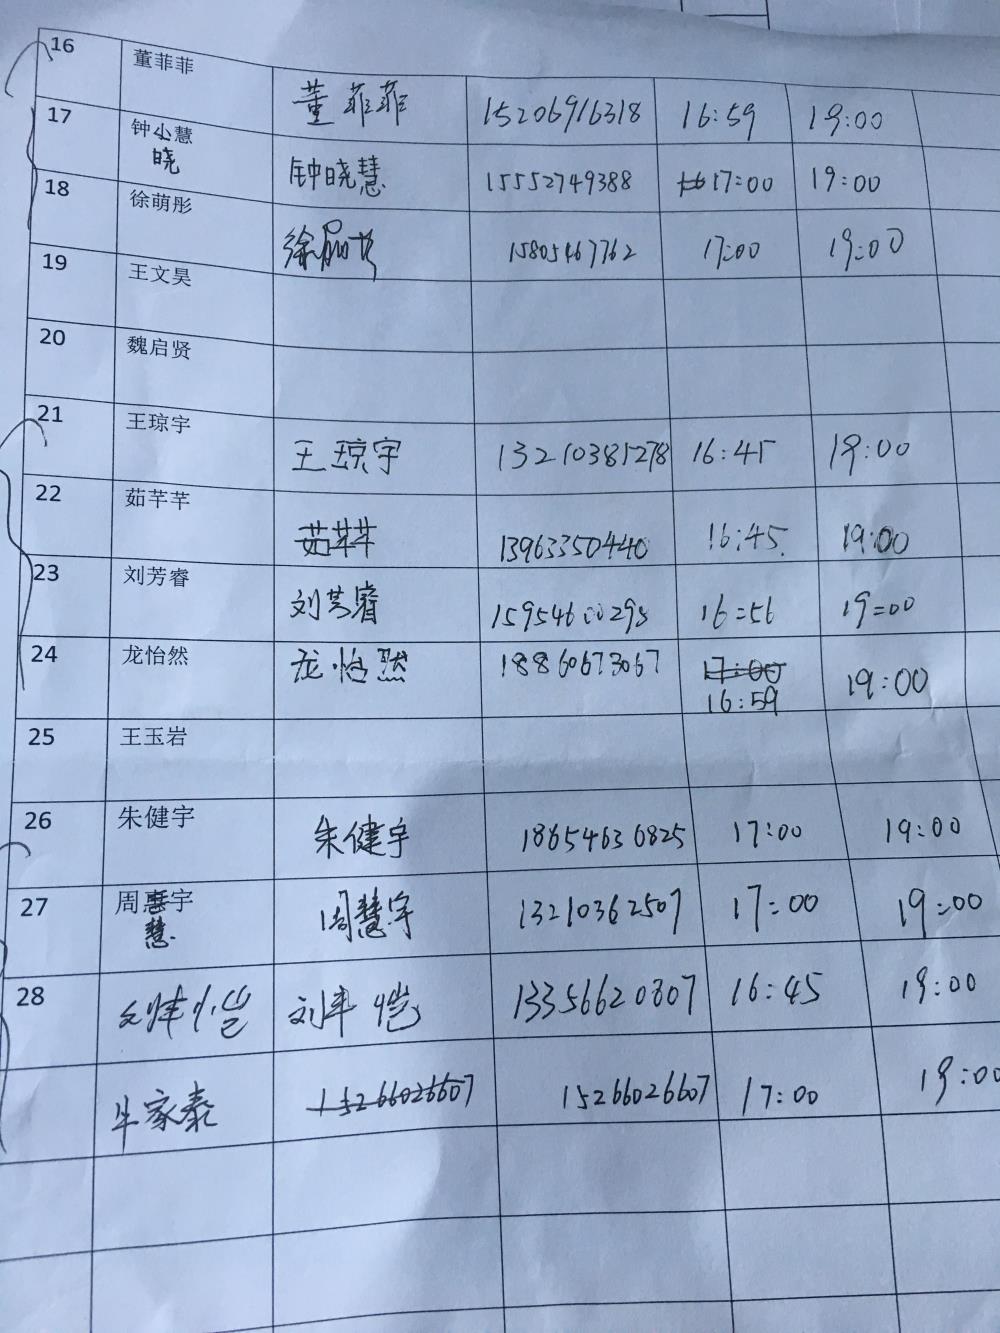 16 董菲菲 董菲菲 15206916318 16:59 19:00
17 钟小慧 钟晓慧 15552749388 17:00 19:00
晓
18 徐萌彤 15805467762 17:00 19:00
19 王文昊
20 魏启贤
21 王琼宇 王琼宇 13210385278 16:45 19:00
22 茹芊芊 茹芊芊 13963350440 16:45 19:00
23 刘芳睿 刘芳睿 15954600298 16:56 19:00
24 龙怡然 龙怡然 18860673067 17:00 19:00
16:59
25 王玉岩
26 朱健宇 朱健宇 18654636825 17:00 19:00
27 周惠宇 周慧宇 13210362507 17:00 19:00
慧
28 刘 恺 13356620807 16:45 19:00
牛家泰 15266026607 15266026607 17:00 19:00